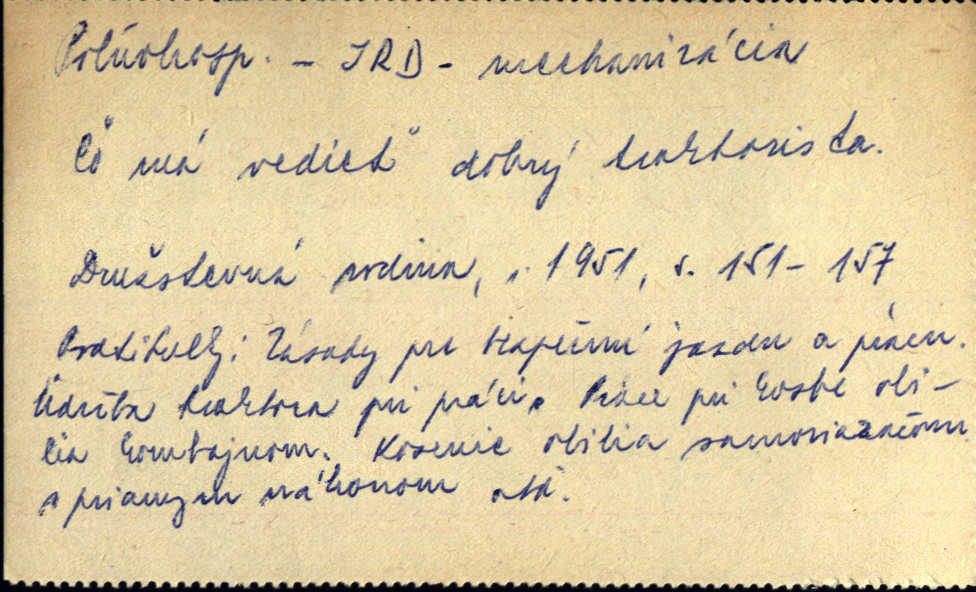 Poľnohosp. - JRD - mechanizácia
Čo má vedieť dobrý traktorista.
Družstevná rodina, 1951, s. 151-157
Zásady pre bezpečnú jazdu a prácu.
Údržba traktora pri práci. Práce pri kosbe obi-
lia kombajnom. Kosenie obilia samoviazačom
s priamym náhonom atď.